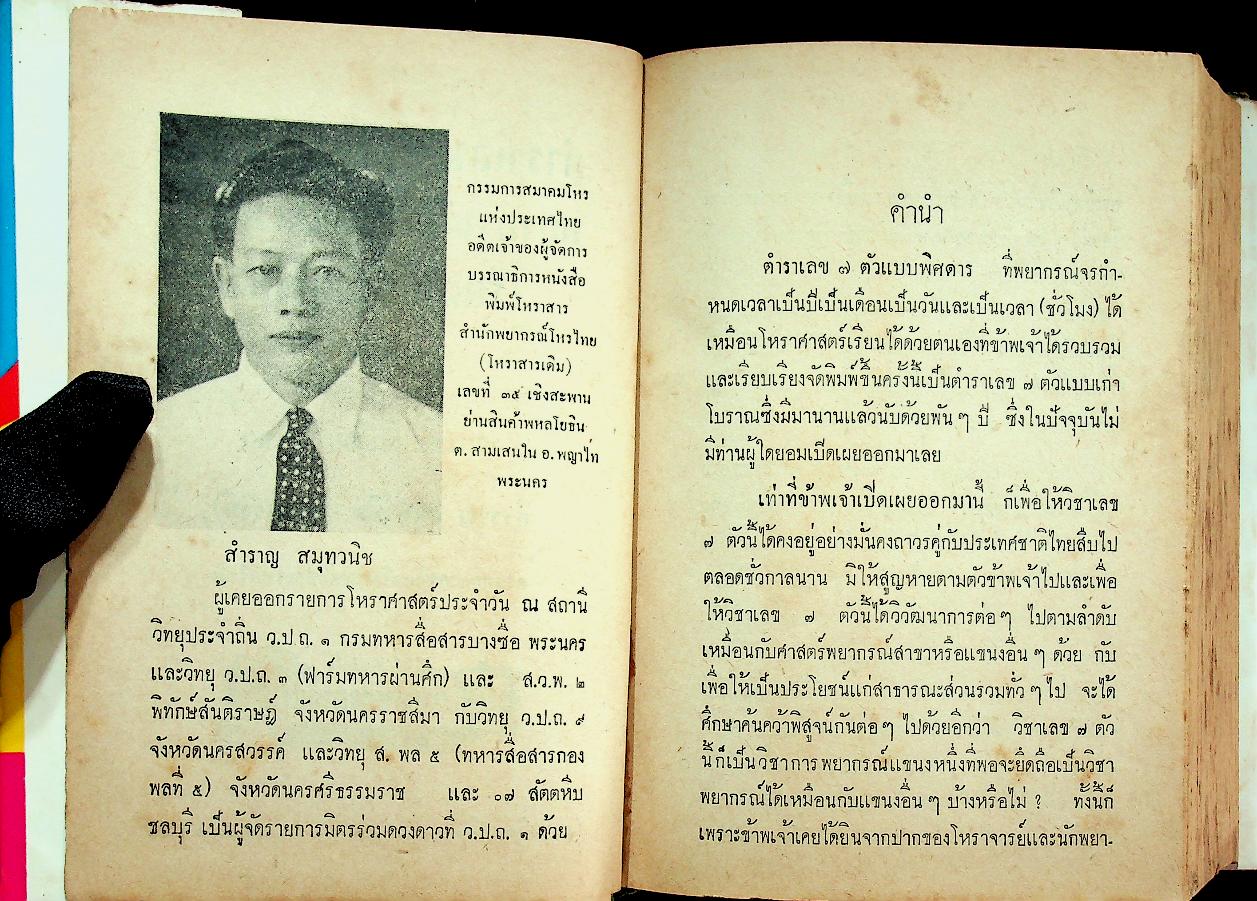 กรรมการสมาคมโหร
แห่งประเทศไทย
อดีตเจ้าของผู้จัดการ
บรรณาธิการหนังสือ
พิมพ์โหราสาร
สำนักพยากรณ์โหรไทย
(โหราสารเดิม)
เลขที่ ๓๕ เชิงสะพาน
ย่านสินค้าพหลโยธิน
ต. สามเสนใน อ. พญาไท
พระนคร
สำราญ สมุทวนิช
ผู้เคยออกรายการโหราศาสตร์ประจำวัน ณ สถานี
วิทยุประจำถิ่น ว.ป.ถ. ๑ กรมทหารสื่อสารบางซื่อ พระนคร
และวิทยุ ว.ป.ถ. ๓ (ฟาร์มทหารผ่านศึก) และ ส.ว.พ. ๒
พิทักษ์สันติราษฎร์ จังหวัดนครราชสีมา กับวิทยุ ว.ป.ถ. ๙
จังหวัดนครสวรรค์ และวิทยุ ส. พล ๕ (ทหารสื่อสารกอง
พลที่ ๕) จังหวัดนครศรีธรรมราช และ ๐๗ สัตตหีบ
ชลบุรี เป็นผู้จัดรายการมิตรร่วมดวงดาวที่ ว.ป.ถ. ๑ ด้วย
คำนำ
ตำราเลข ๗ ตัวแบบพิศดาร ที่พยากรณ์จรกำ-
หนดเวลาเป็นปีเป็นเดือนเป็นวันและเป็นเวลา (ชั่วโมง) ได้
เหมือนโหราศาสตร์เรียนได้ด้วยตนเองที่ข้าพเจ้าได้รวบรวม
และเรียบเรียงจัดพิมพ์ขึ้นครั้งนี้เป็นตำราเลข ๗ ตัวแบบเก่า
โบราณซึ่งมีมานานแล้วนับด้วยพัน ๆ ปี ซึ่งในปัจจุบันไม่
มีท่านผู้ใดยอมเปิดเผยออกมาเลย
เท่าที่ข้าพเจ้าเปิดเผยออกมานี้ ก็เพื่อให้วิชาเลข
๗ ตัวนี้ได้คงอยู่อย่างมั่นคงถาวรคู่กับประเทศชาติไทยสืบไป
ตลอดชั่วกาลนาน มิให้สูญหายตามตัวข้าพเจ้าไปและเพื่อ
ให้วิชาเลข ๗ ตัวนี้ได้วิวัฒนาการต่อ ๆ ไปตามลำดับ
เหมือนกับศาสตร์พยากรณ์สาขาหรือแขนงอื่น ๆ ด้วย กับ
เพื่อให้เป็นประโยชน์แก่สาธารณะส่วนรวมทั่ว ๆ ไป จะได้
ศึกษาค้นคว้าพิสูจน์กันต่อ ๆ ไปด้วยอีกว่า วิชาเลข ๗ ตัว
นี้ก็เป็นวิชาการพยากรณ์แขนงหนึ่งที่พอจะยึดถือเป็นวิชา
พยากรณ์ได้เหมือนกับแขนงอื่น ๆ บ้างหรือไม่ ? ทั้งนี้ก็
เพราะข้าพเจ้าเคยได้ยินจากปากของโหราจารย์และนักพยา-